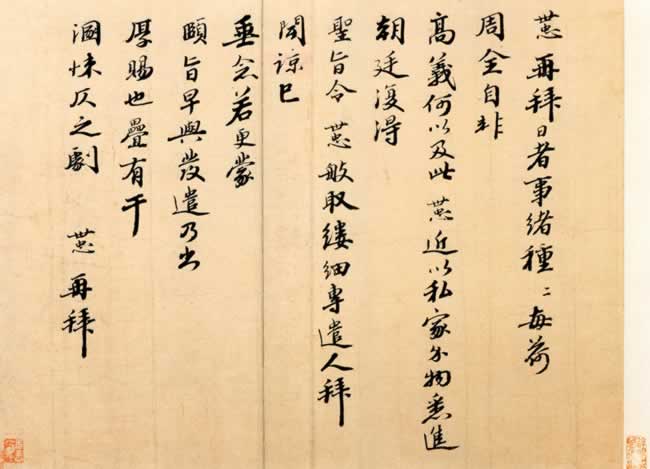 世忠再拜日者事緒種〻每荷
周全自非
高義何以及此世忠近以私家分物悉進
朝廷復得
聖旨令世忠般取縷細專遣人拜
聞諒已
垂念若更蒙
頤旨早與發遣乃出
厚賜也疊有干
溷悚仄之劇 世忠再拜